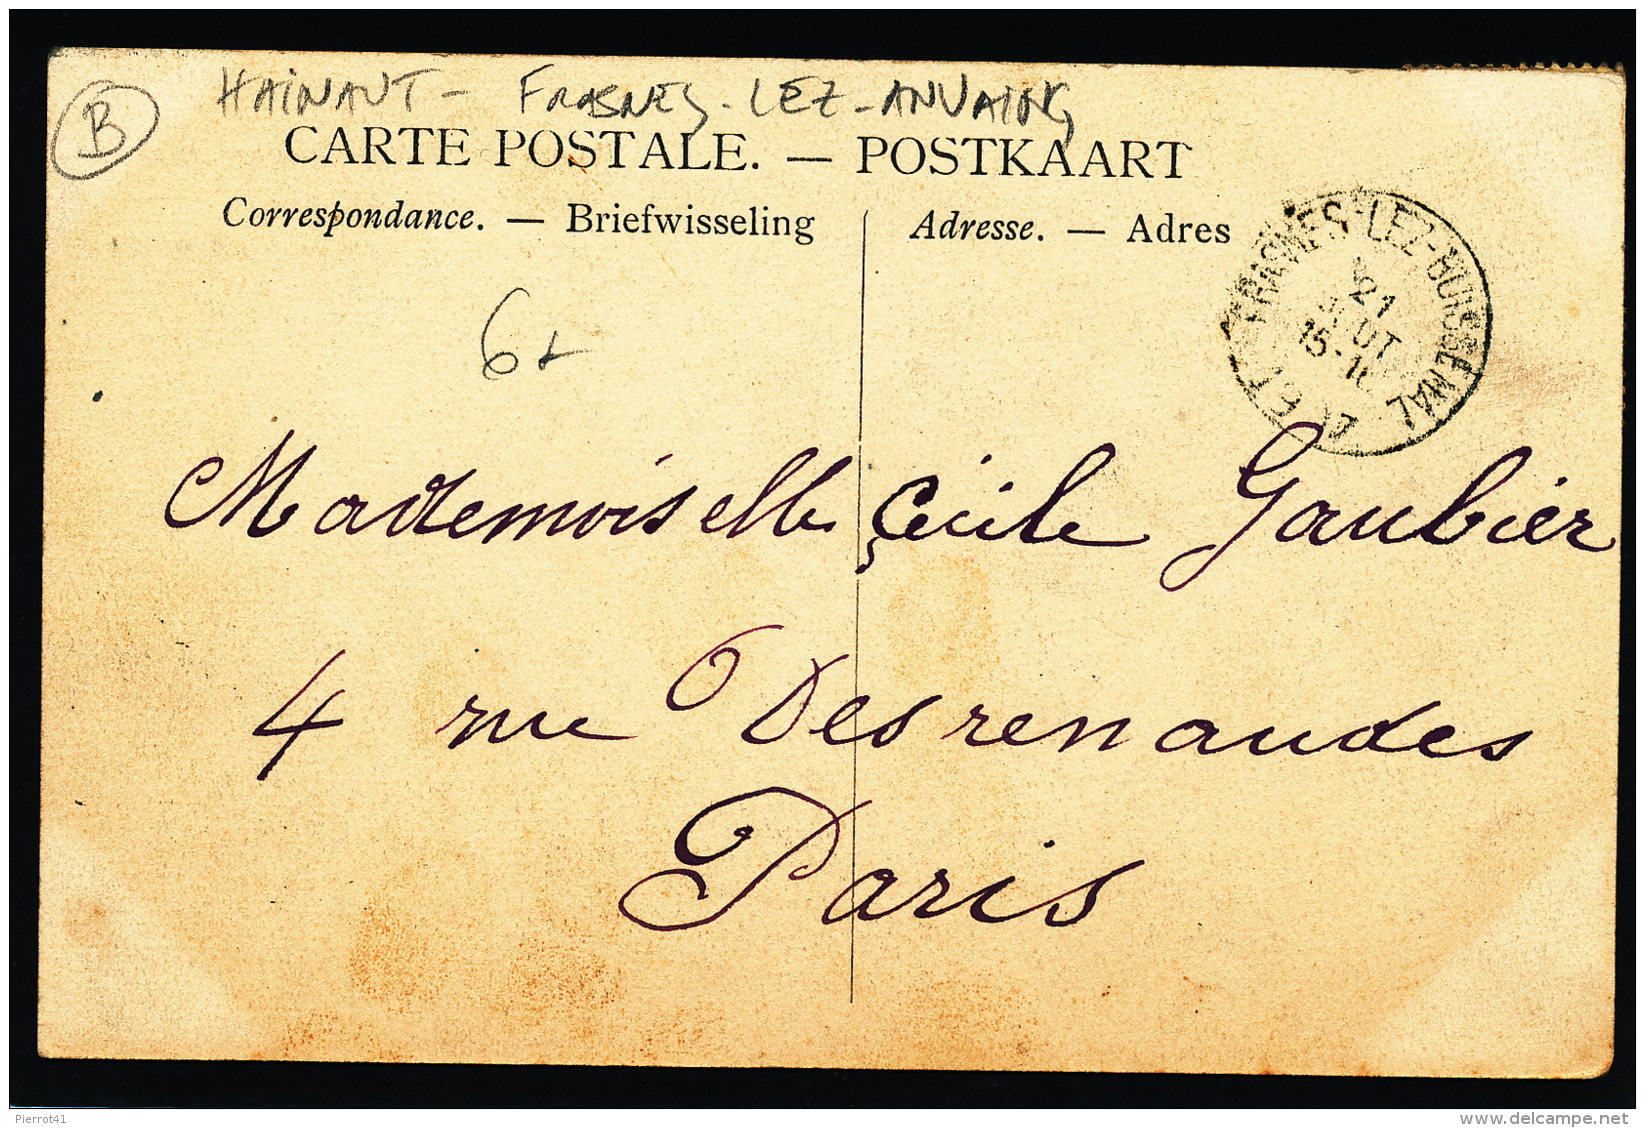 B
HAINAUT - FRASNES-LEZ-ANVAING
CARTE POSTALE. — POSTKAART
Correspondance. — Briefwisseling
Adresse. — Adres
FRASNES-LEZ-BUISSENAL
21
AOUT
15-1
6
Mademoiselle Cécile Gaubier
4 rue Desrenaudes
Paris
Pierrot41
www.delcampe.net